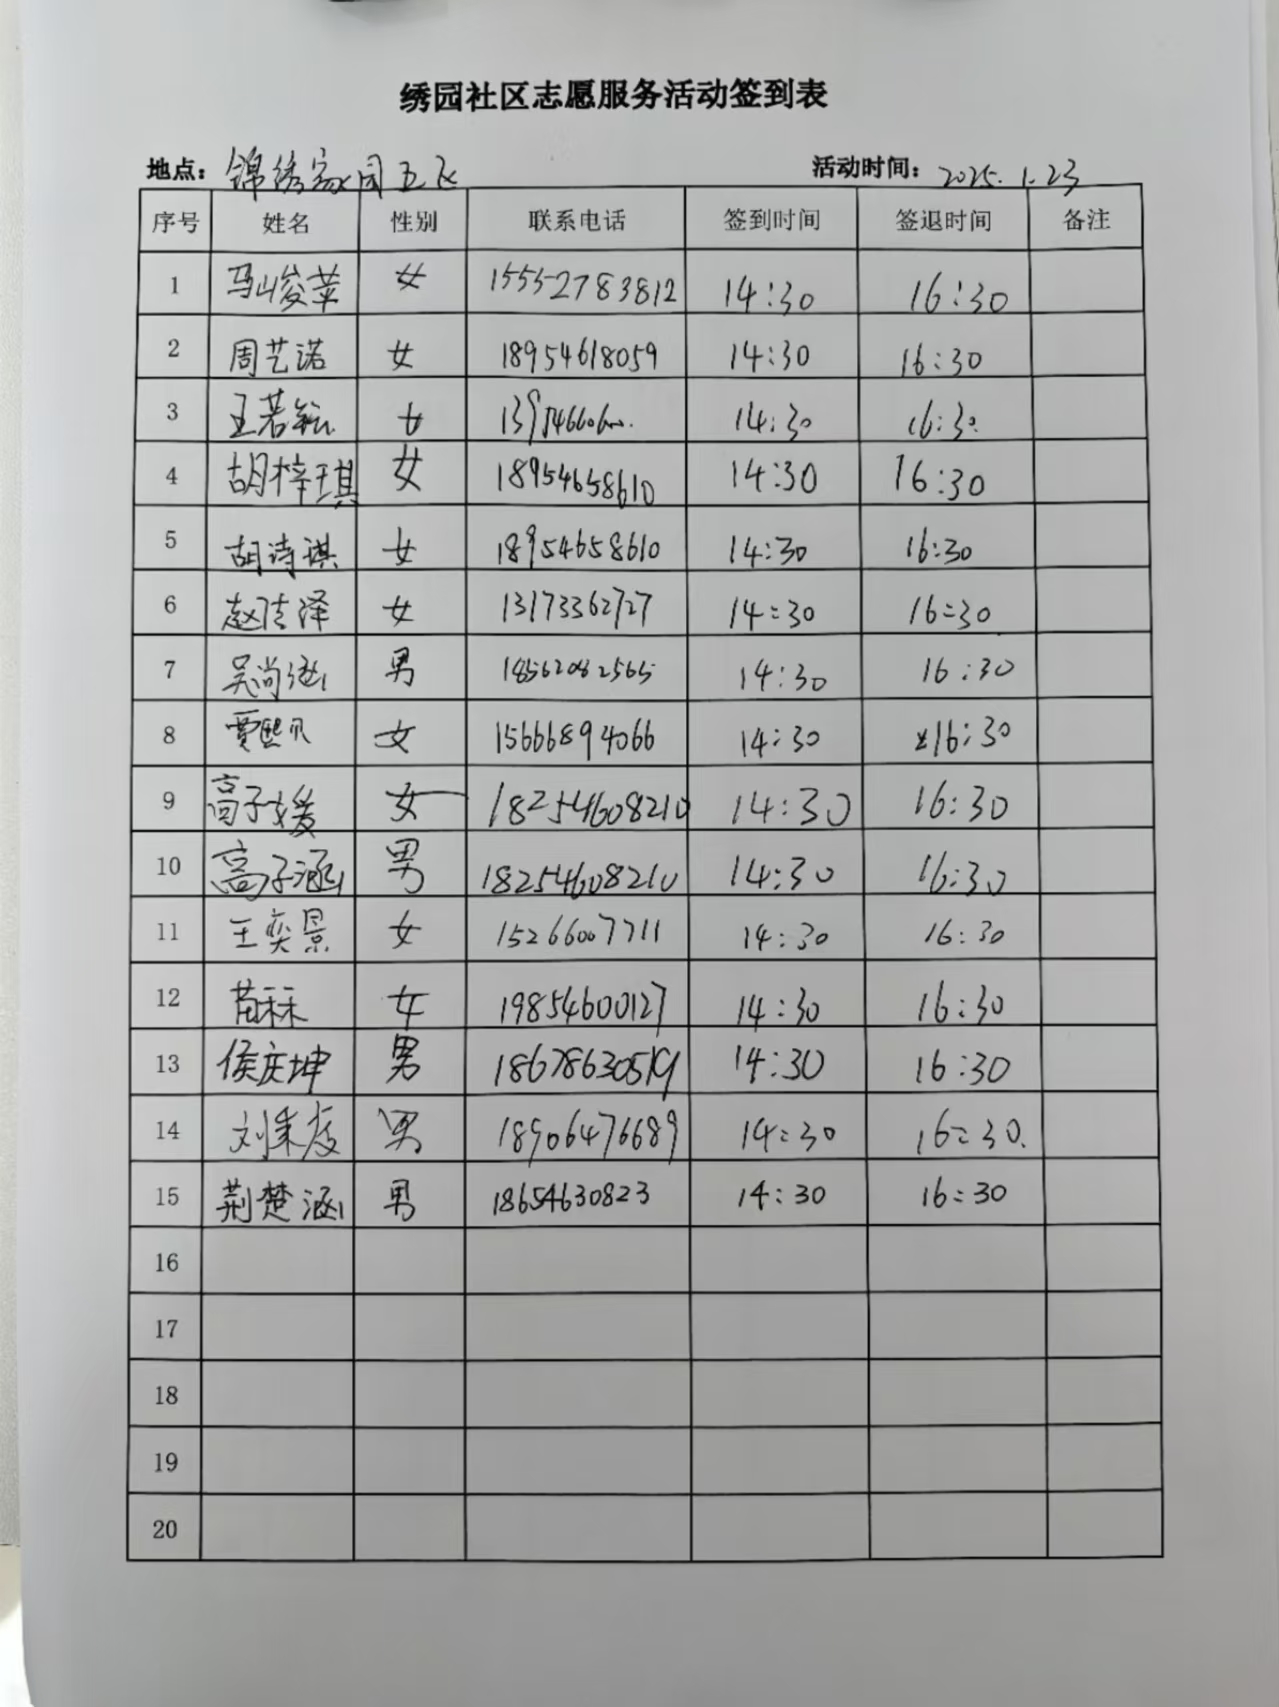 绣园社区志愿服务活动签到表
地点：锦绣家园五区 活动时间：2025.1.23
序号 姓名 性别 联系电话 签到时间 签退时间 备注
1 马峻苹 女 15552783812 14:30 16:30
2 周艺诺 女 18954618059 14:30 16:30
3 王若 女 14:30 16:30
4 胡梓琪 女 18954658610 14:30 16:30
5 胡诗琪 女 18954658610 14:30 16:30
6 赵洁泽 女 13173362727 14:30 16:30
7 吴尚涵 男 18562082565 14:30 16:30
8 贾熙贝 女 15666894066 14:30 16:30
9 高子媛 女 18254608210 14:30 16:30
10 高子涵 男 18254608210 14:30 16:30
11 王奕景 女 15266007711 14:30 16:30
12 苗秝 女 19854600127 14:30 16:30
13 侯庆坤 男 18678630519 14:30 16:30
14 刘秉度 男 18906476689 14:30 16:30
15 荆楚涵 男 18654630823 14:30 16:30
16
17
18
19
20